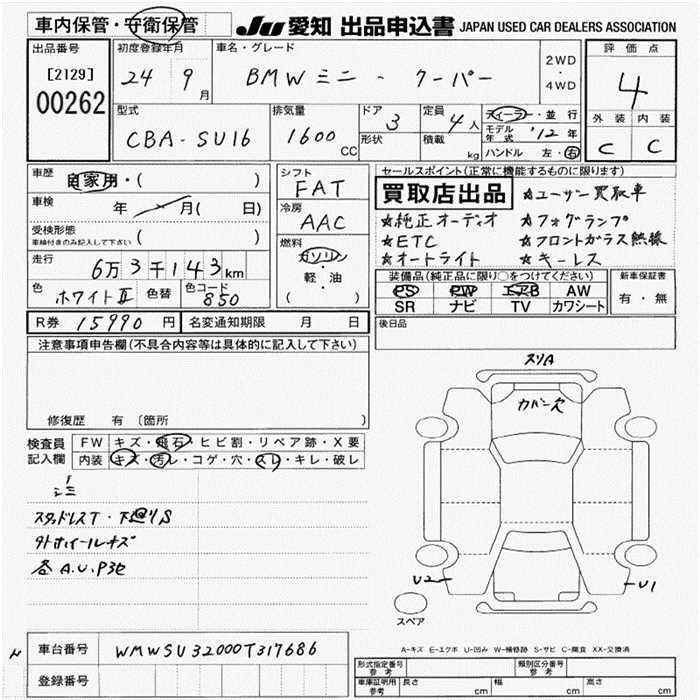 車内保管・守衛保管 JU 愛知 出品申込書 JAPAN USED CAR DEALERS ASSOCIATION
出品番号
[2129]
00262
初度登録年月
24 9月
車名・グレード
BMWミニ - クーパー
2WD
・
4WD
評価点
4
外装 内装
C C
型式
CBA-SU16
排気量
1600 CC
ドア 3
形状
定員 4人
積載 kg
ディーラー・並行
モデル年式 '12年
ハンドル 左・右
車歴 自家用・( )
車検 年 月( 日)
受検形態
車検付きのみ記入して下さい ( )
走行 6万3千143km
色 ホワイトII 色替 色コード 850
シフト
FAT
冷房
AAC
燃料
ガソリン
軽・油
( )
セールスポイント(正常に機能するものに限ります)
買取店出品 ☆ユーザー買取車
☆純正オーディオ ☆フォグランプ
☆ETC ☆フロントガラス熱線
☆オートライト ☆キーレス
装備品(純正品に限り○をつけてください)
PS PW エアB AW
SR ナビ TV カワシート
新車保証書
有・無
R券 15990円 名変通知期限 月 日
後日品
注意事項申告欄(不具合内容等は具体的に記入して下さい)
修復歴 有 〔箇所 〕
検査員記入欄
FW キズ・飛石・ヒビ割・リペア跡・X要
内装 キズ・汚レ・コゲ・穴・スレ・キレ・破レ
スタッドレスT・下廻りS
外ホイールキズ
各A.U.P3他
スリA
カバー欠
U2
U1
スペア
A-キズ E-エクボ U-凹み W-補修跡 S-サビ C-腐食 XX-交換済
車台番号 WMWSU32000T317686
登録番号
形式指定番号
参考
類別区分番号
参考
車庫証明用
参考
長さ cm 幅 cm 高さ cm